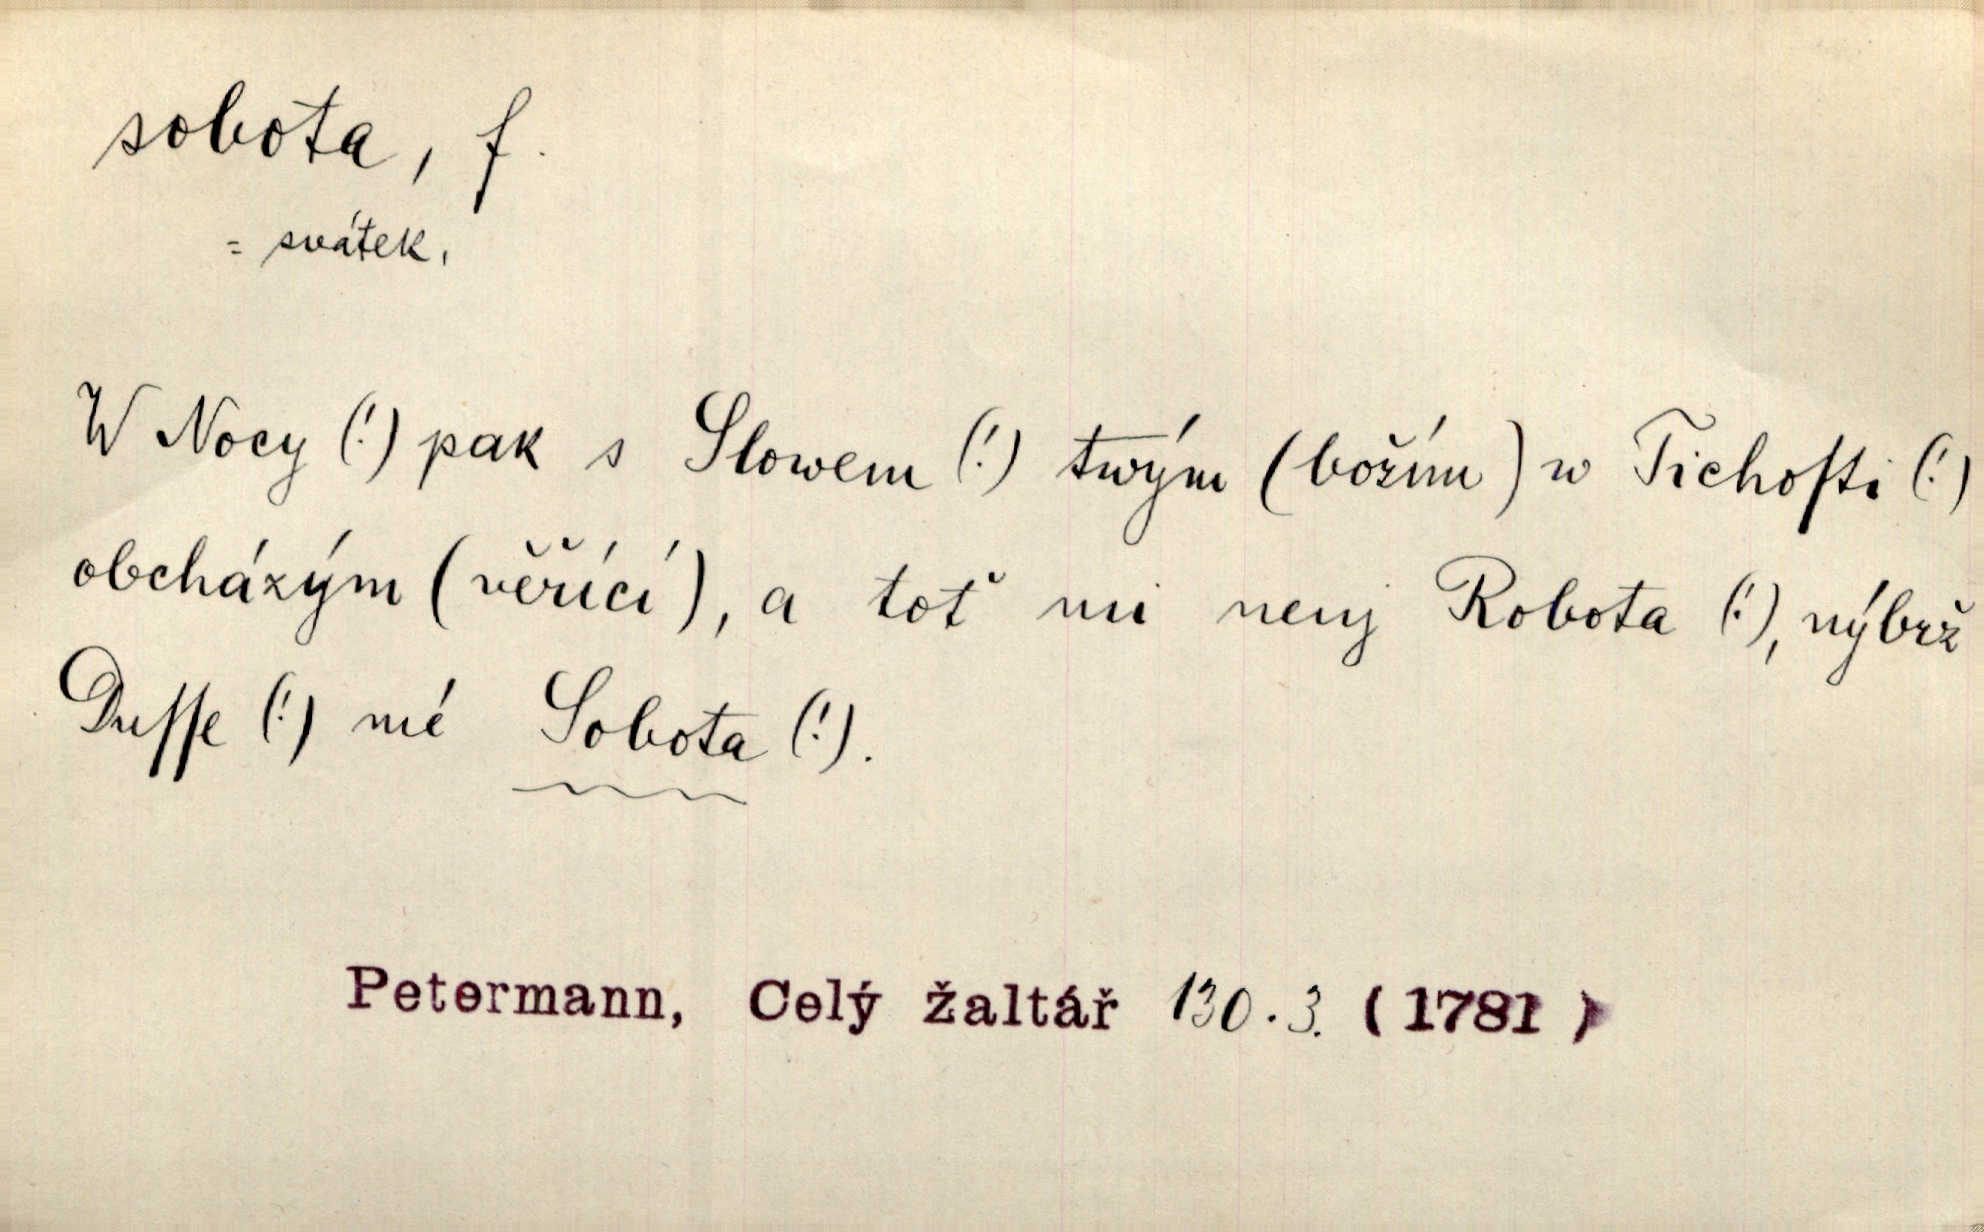 sobota, f.
= svátek,
W Nocy (!) pak s Slowem (!) twým (božím) w Tichoſti (!)
obcházým (věřící), a toť mi nenj Robota (!), nýbrž
Duſſe (!) mé Sobota (!).
Petermann, Celý žaltář 130.3. (1781)